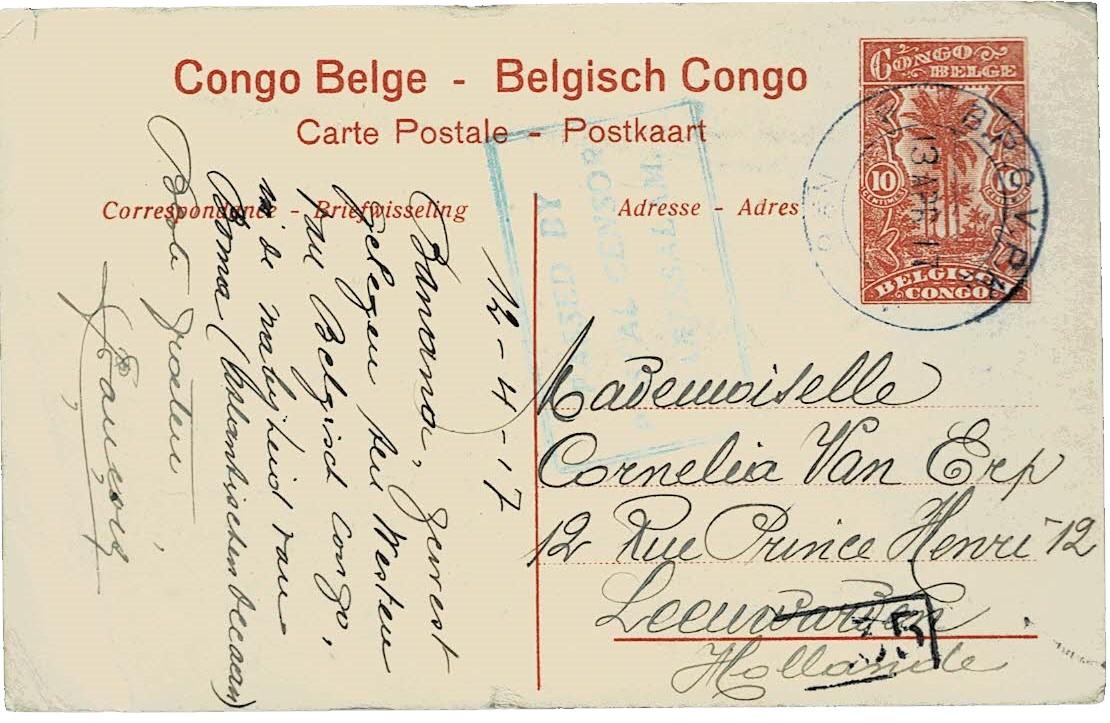 Congo Belge - Belgisch Congo
Carte Postale - Postkaart
Correspondance - Briefwisseling
Adresse - Adres
CONGO
BELGE
10
CENTIMES
BELGISCH
CONGO
B.P.C.V.P.K.
13 APR 17
PASSED BY
CENSOR
12-4-17
Banana, gewest
gelegen ten Westen
van Belgisch Congo,
in de nabijheid van
Boma (Atlantischen Oceaan)
Beste groeten
François
Mademoiselle
Cornelia Van Erp
12 Rue Prince Henri 12
Leeuwarden
Hollande